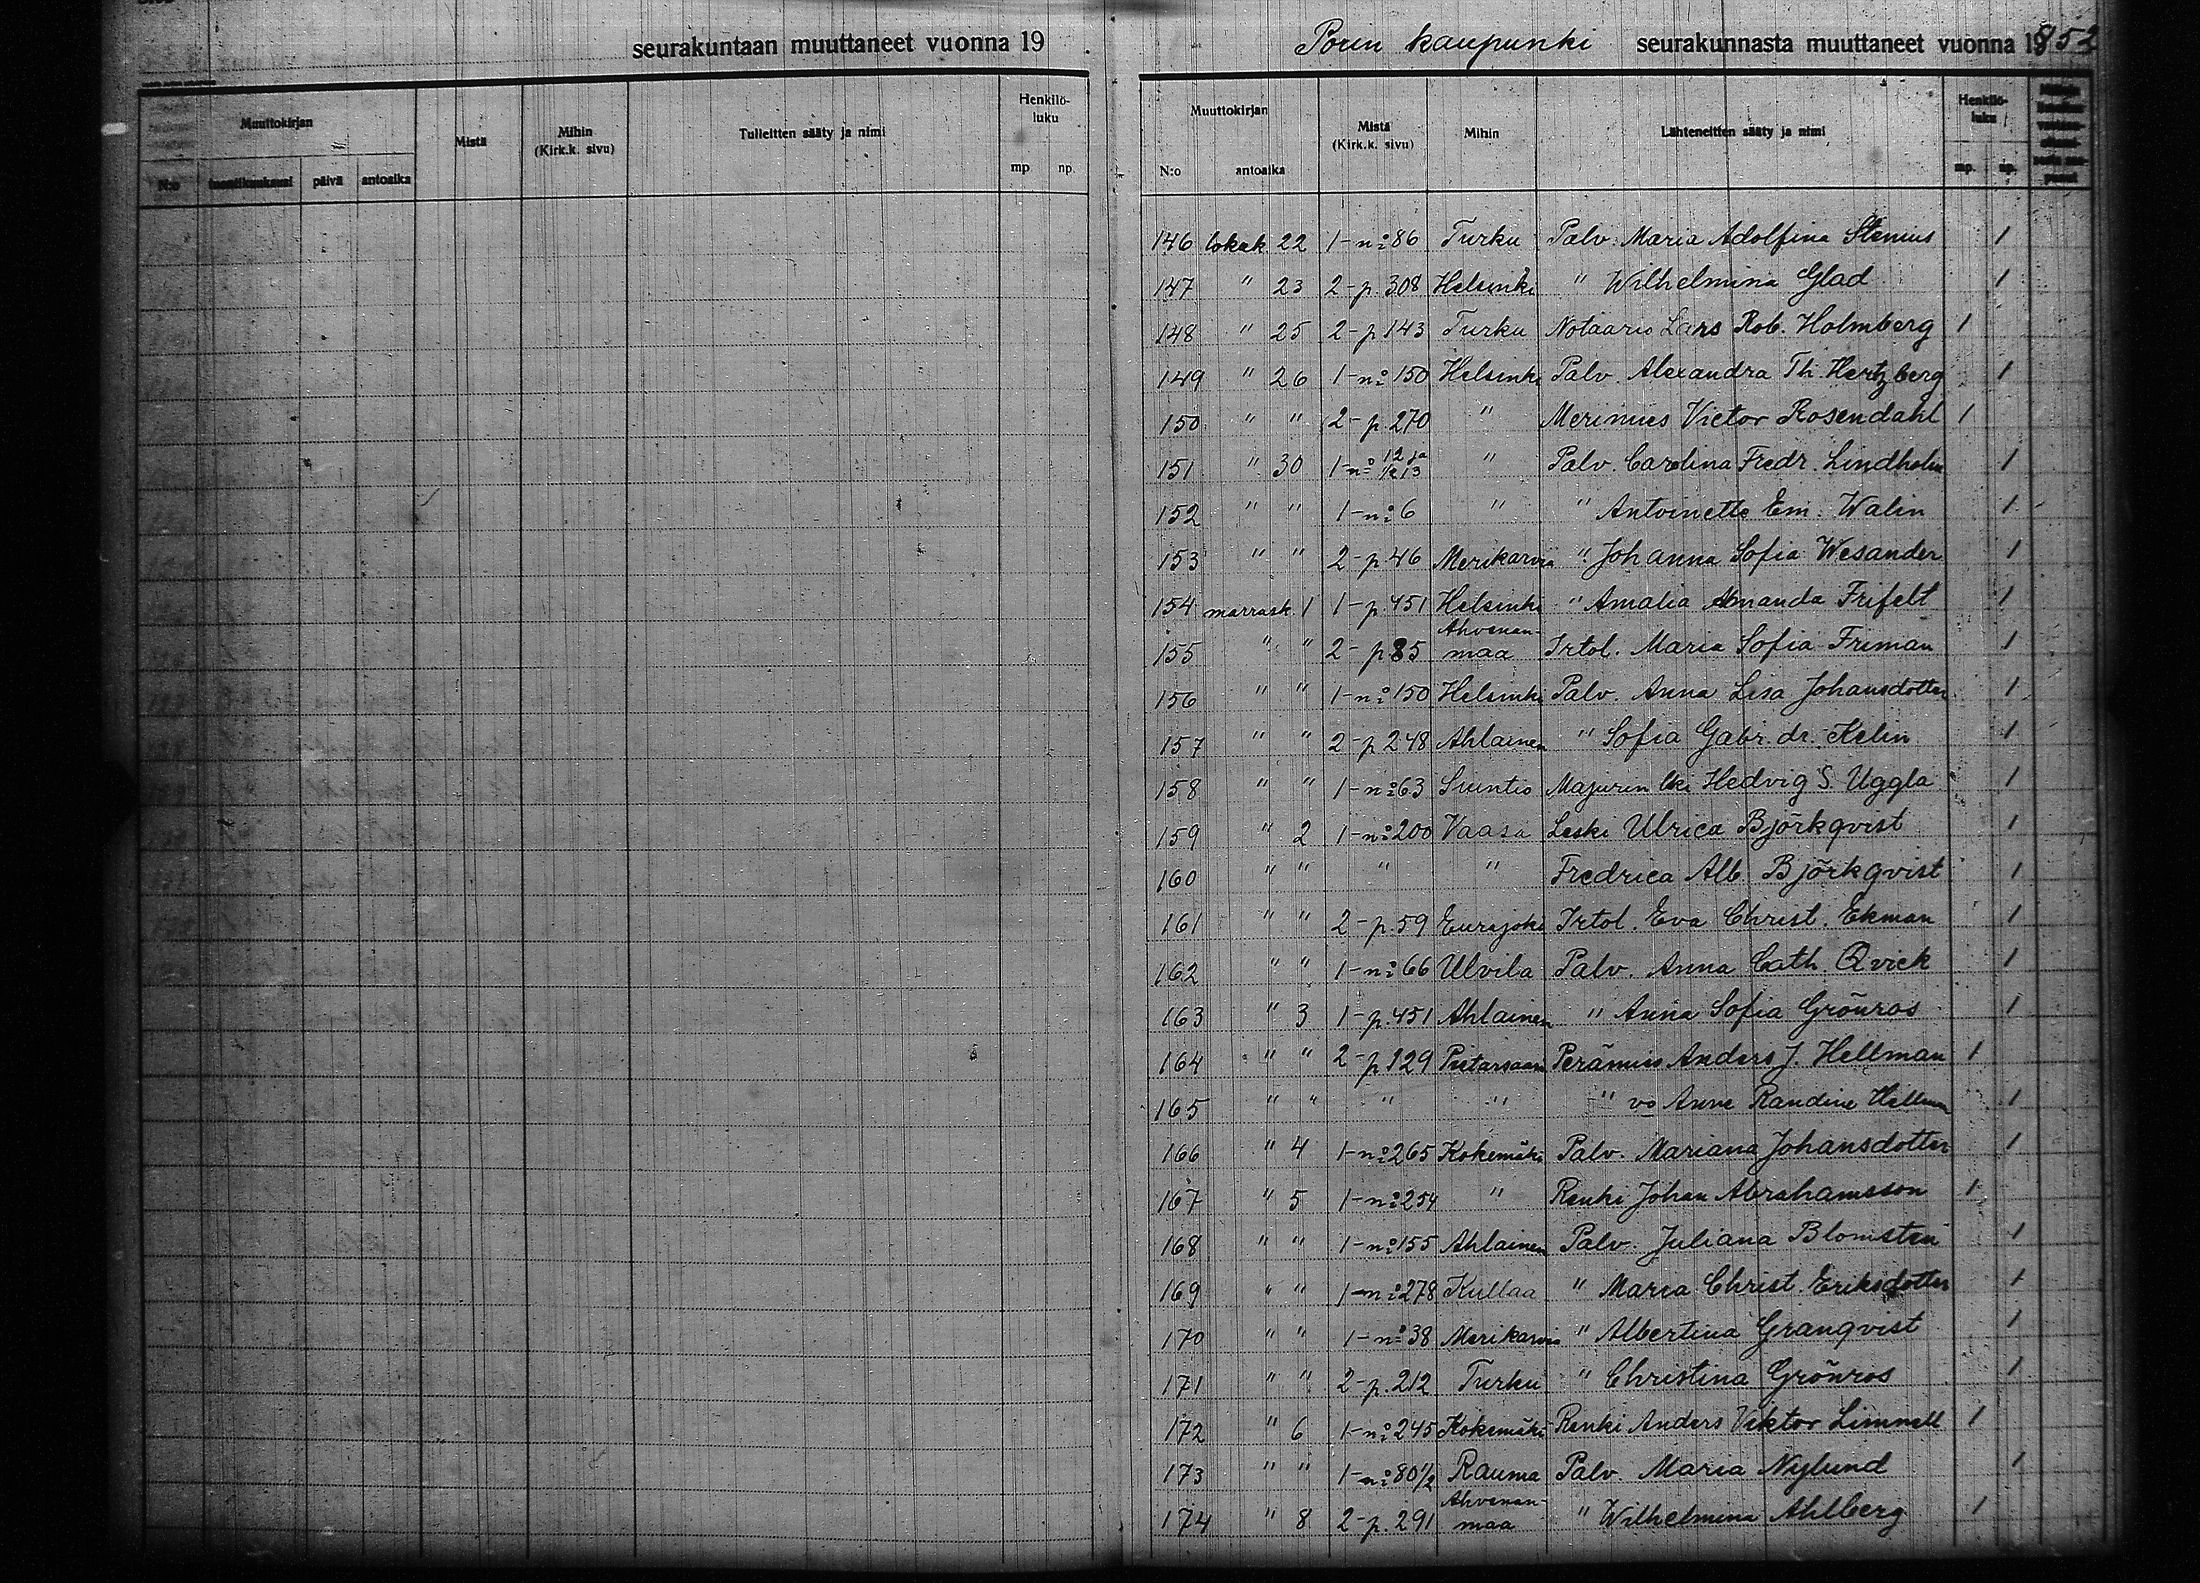 seurakuntaan muuttaneet vuonna 19
Muuttokirjan
Mistä
Mihin (Kirk.k. sivu)
Tulleitten sääty ja nimi
Henkilö-luku
N:o päivä antoaika mp. np.
Porin kaupunki seurakunnasta muuttaneet vuonna 1852
Muuttokirjan
Mistä (Kirk.k. sivu)
Mihin
Lähteneitten sääty ja nimi
Henkilö-luku
N:o antoaika mp. np.
146 lokak 22 1-n:o 86 Turku Palv. Maria Adolfina Stenius 1
147 " 23 2-p.308 Helsinki " Wilhelmina Glad 1
148 " 25 2-p.143 Turku Notaario Lars Rob. Holmberg 1
149 " 26 1-n:o 150 Helsinki Palv. Alexandra Th. Hertzberg 1
150 " " 2-p.270 " Merimies Victor Rosendahl 1
151 " 30 1-n:o 12 ja 1/2 13 " Palv. Carolina Fredr. Lindholm 1
152 " " 1-n:o 6 " " Antoinette Em. Walin 1
153 " " 2-p.46 Merikarvia " Johanna Sofia Wesander 1
154 marrask. 1 1-p.451 Helsinki " Amalia Amanda Frifelt 1
155 " " 2-p.85 Ahvenan-maa Irtol. Maria Sofia Friman 1
156 " " 1-n:o 150 Helsinki Palv. Anna Lisa Johansdotter 1
157 " " 2-p.248 Ahlainen " Sofia Gabr. dr. Kelin 1
158 " " 1-n:o 63 Siuntio Majurin lki Hedvig S. Uggla 1
159 " 2 1-n:o 200 Vaasa Leski Ulrica Björkqvist 1
160 " " " " Fredrica Alb. Björkqvist 1
161 " " 2-p.59 Eurajoki Irtol. Eva Christ. Ekman 1
162 " " 1-n:o 66 Ulvila Palv. Anna Cath. Qvick 1
163 " 3 1-p.451 Ahlainen " Anna Sofia Grönros 1
164 " " 2-p.129 Pietarsaari Perämies Anders J. Hellman 1
165 " " " " " vo Anne Randine Hellman 1
166 " 4 1-n:o 265 Kokemäki Palv. Mariana Johansdotter 1
167 " 5 1-n:o 254 " Renki Johan Abrahamsson 1
168 " " 1-n:o 155 Ahlainen Palv. Juliana Blomsten 1
169 " " 1-n:o 278 Kullaa " Maria Christ. Eriksdotter 1
170 " " 1-n:o 38 Merikarvia " Albertina Granqvist 1
171 " " 2-p.212 Turku " Christina Grönros 1
172 " 6 1-n:o 245 Kokemäki Renki Anders Viktor Limnell 1
173 " " 1-n:o 80 1/2 Rauma Palv Maria Nylund 1
174 " 8 2-p.291 Ahvenan-maa " Wilhelmina Ahlberg 1